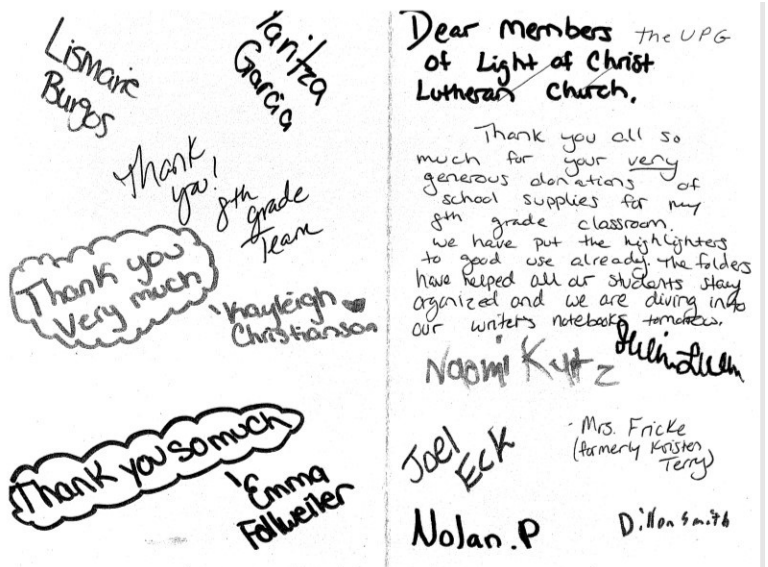 Lismarie
Burgos
Yaritza
Garcia
Thank
you!
8th grade
Team
Thank you
very much
Kayleigh
Christianson
Thank you so much
Emma
Follweiler
Dear members the UPG
of Light of Christ
Lutheran Church.
Thank you all so
much for your very
generous donations of
school supplies for my
8th grade classroom.
We have put the highlighters
to good use already. The folders
have helped all our students stay
organized and we are diving into
our writer's notebooks tomorrow.
Naomi Kutz
Joel
Eck
- Mrs. Fricke
(formerly Kristen
Terry)
Nolan.P
Dillon Smith